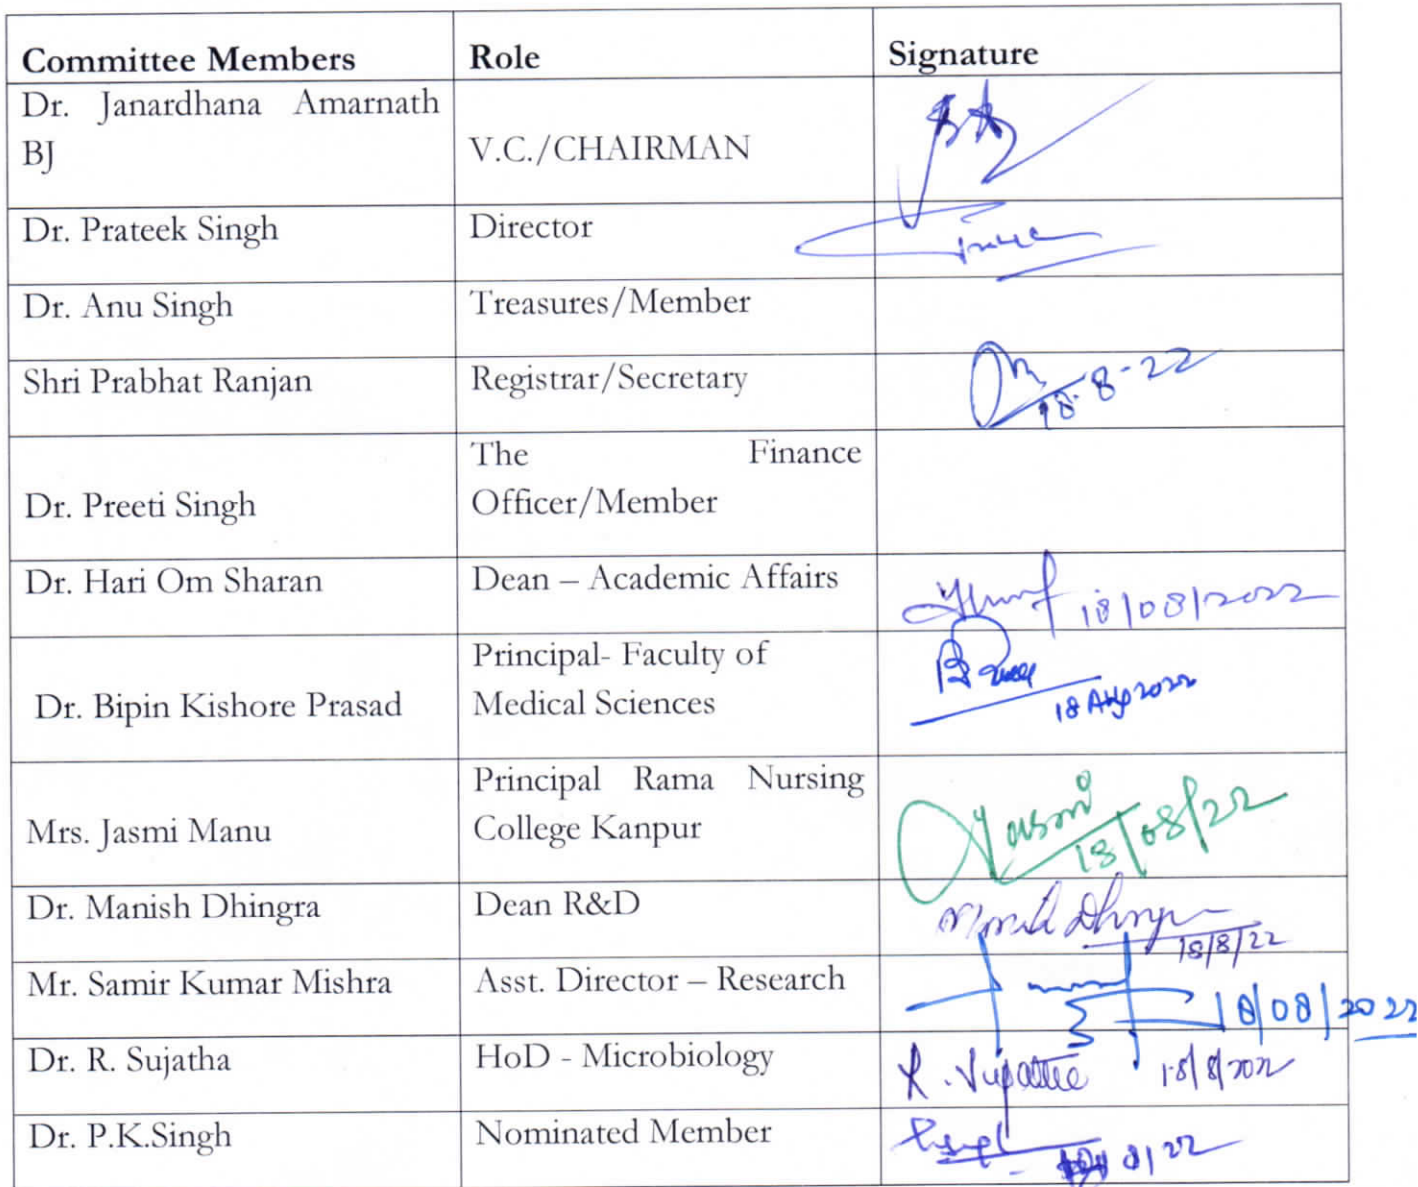 Committee Members Role Signature
Dr. Janardhana Amarnath
BJ V.C./CHAIRMAN
Dr. Prateek Singh Director
Dr. Anu Singh Treasures/Member
Shri Prabhat Ranjan Registrar/Secretary
18-8-22
The Finance
Dr. Preeti Singh Officer/Member
Dr. Hari Om Sharan Dean – Academic Affairs 18/08/2022
Principal- Faculty of
Dr. Bipin Kishore Prasad Medical Sciences 18 Aug 2022
Principal Rama Nursing
Mrs. Jasmi Manu College Kanpur 18/08/22
Dr. Manish Dhingra Dean R&D Manish Dhingra
18/8/22
Mr. Samir Kumar Mishra Asst. Director – Research 18/08/2022
Dr. R. Sujatha HoD - Microbiology R. Sujatha 18/8/2022
Dr. P.K.Singh Nominated Member 8/22